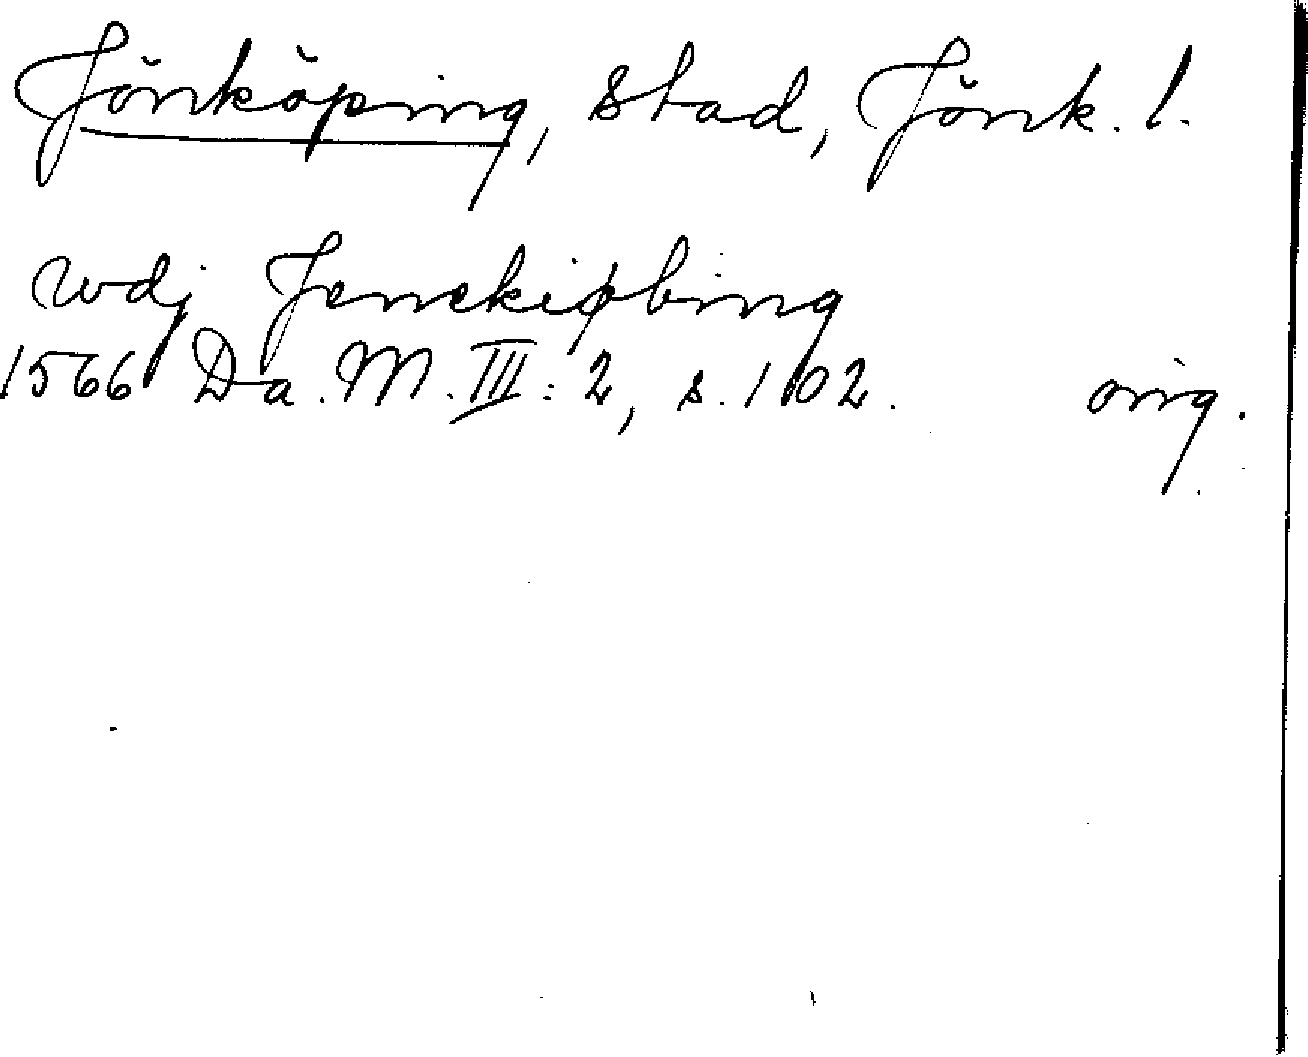 Jönköping, stad, Jönk. l.
wdj Jenekiøbing
1566 Da. M. III: 2, s. 102. orig.